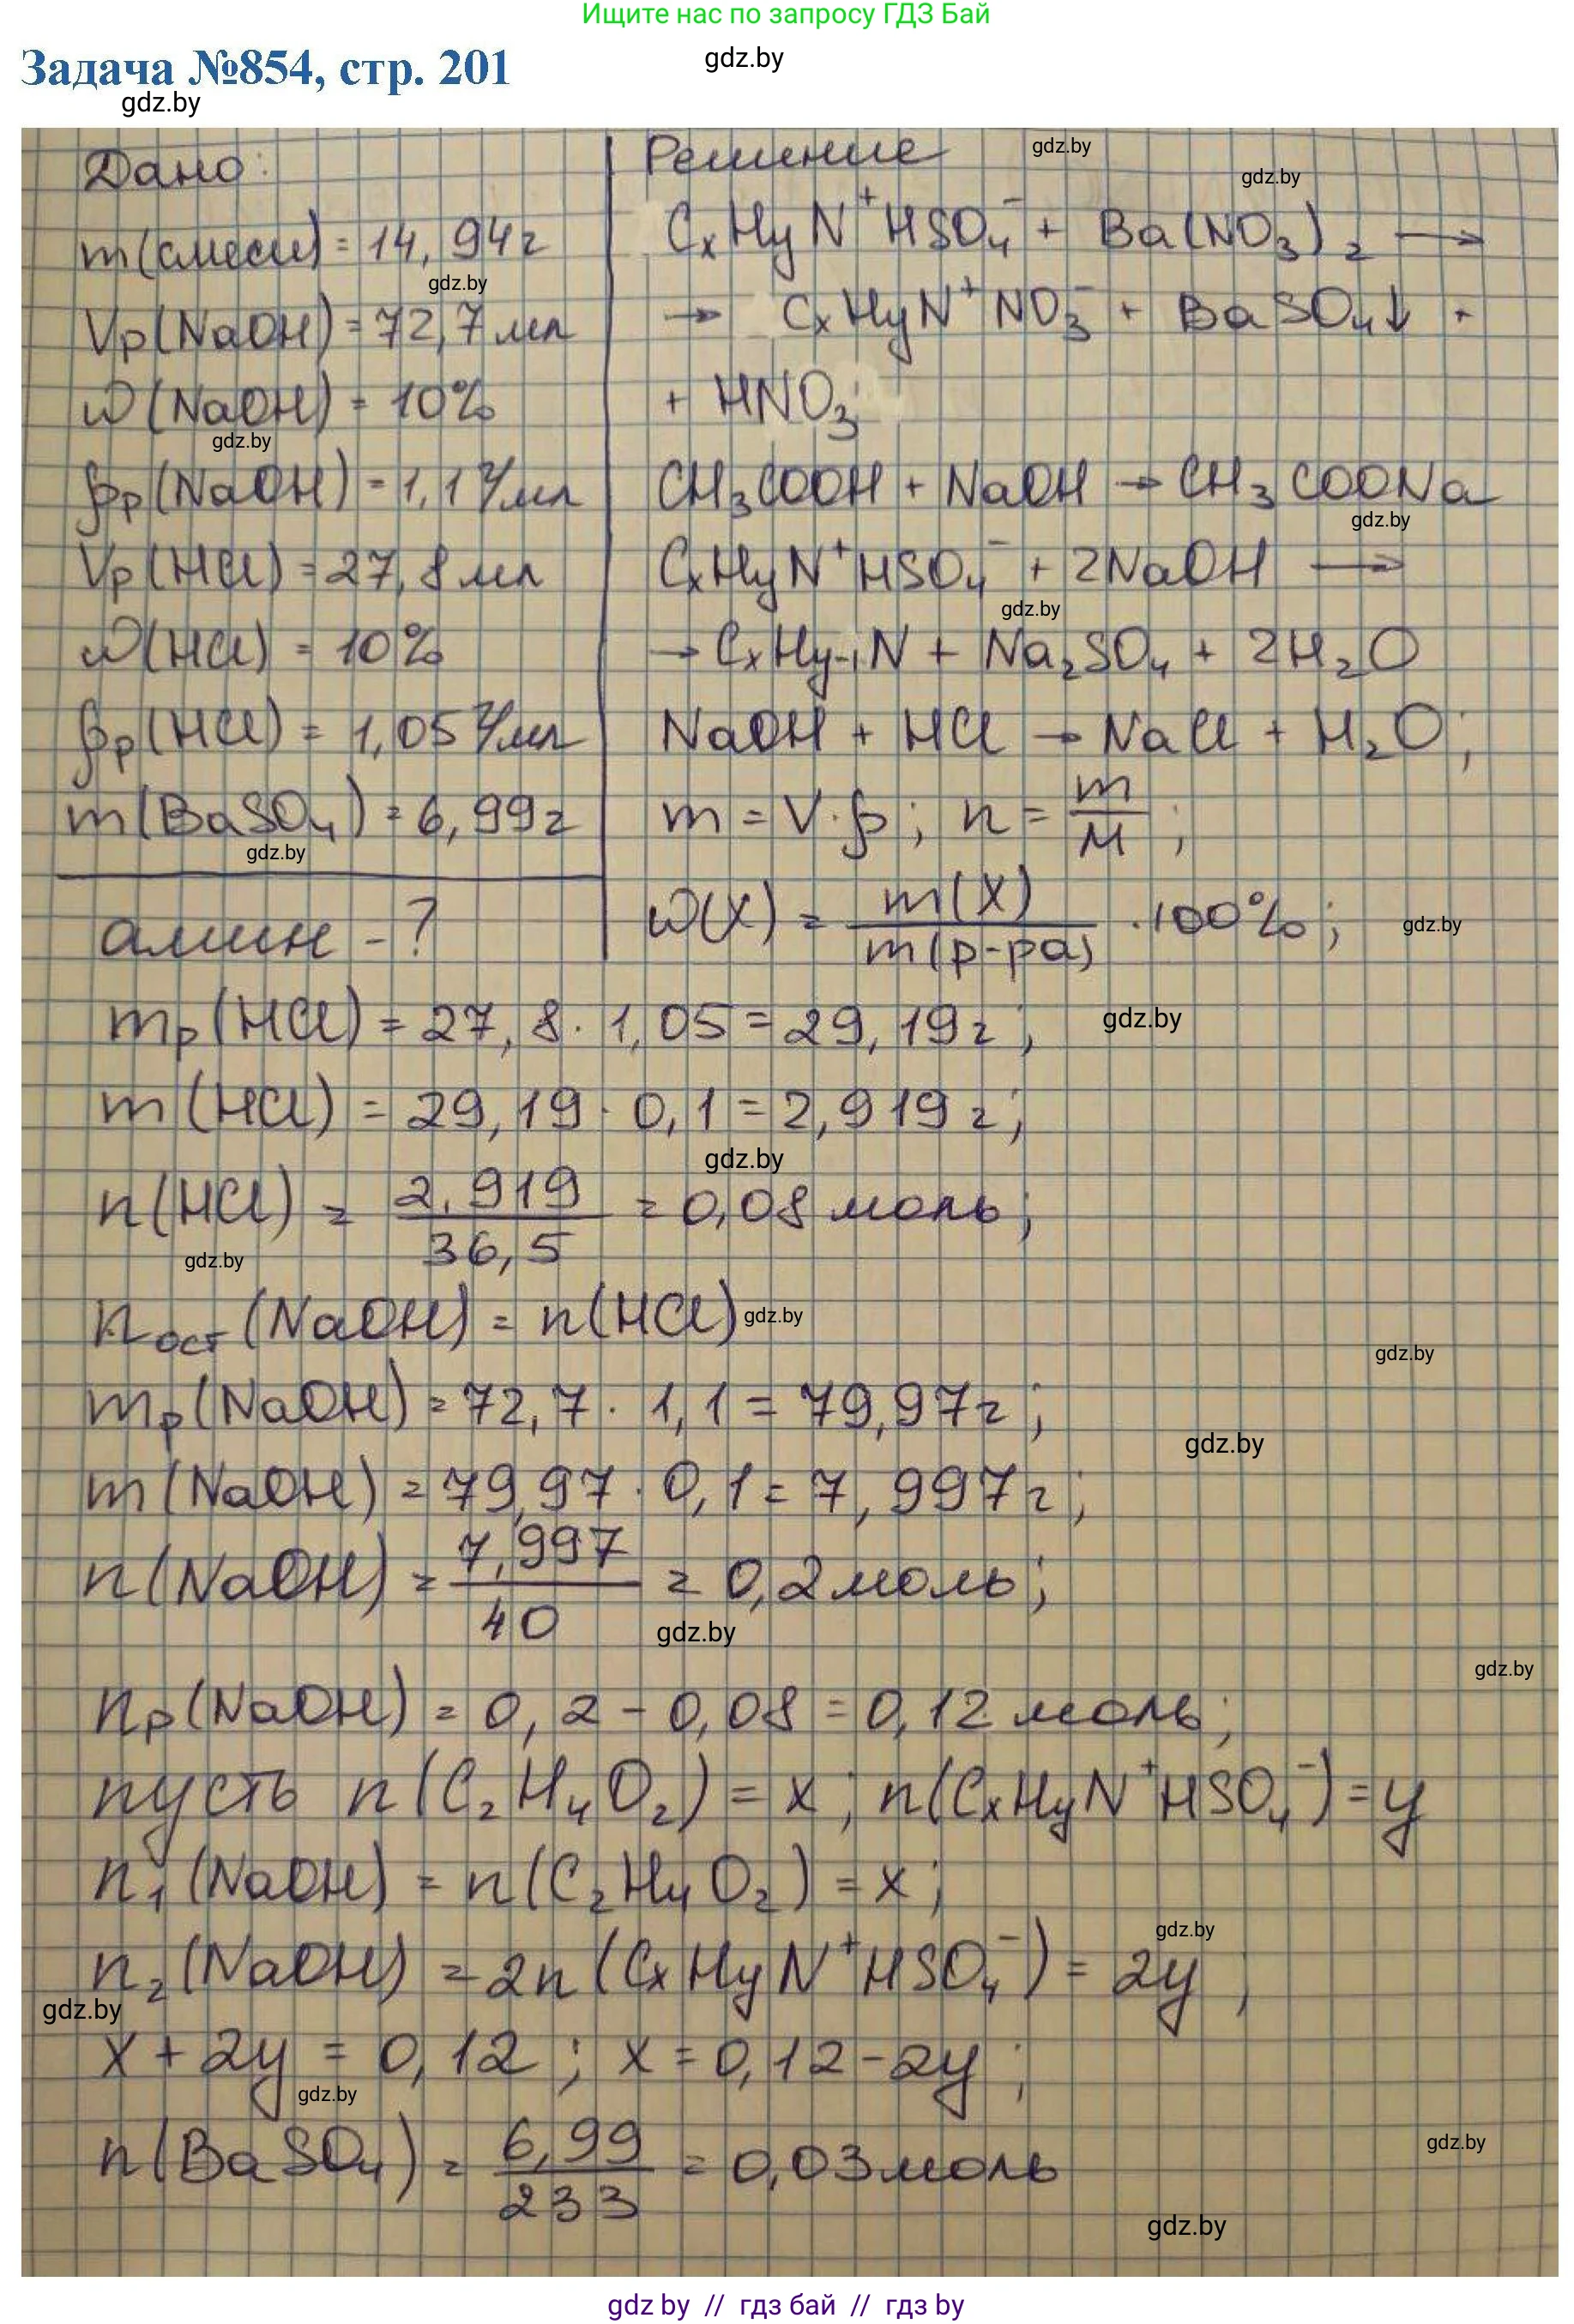 Ищите нас по запросу ГДЗ Бай
Задача №854, стр. 201
gdz.by
gdz.by
Дано:
m(смеси) = 14,94г
gdz.by
Vр(NaOH) = 72,7 мл
ω(NaOH) = 10%
gdz.by
ρр(NaOH) = 1,1 г/мл
Vр(HCl) = 27,8 мл
ω(HCl) = 10%
ρр(HCl) = 1,05 г/мл
m(BaSO₄) = 6,99г
gdz.by
амин - ?
Решение
gdz.by
gdz.by
CxHyN⁺HSO₄⁻ + Ba(NO₃)₂ →
→ CxHyN⁺NO₃⁻ + BaSO₄↓ +
+ HNO₃;
CH₃COOH + NaOH → CH₃COONa
gdz.by
CxHyN⁺HSO₄⁻ + 2NaOH →
gdz.by
→ CxHy-1N + Na₂SO₄ + 2H₂O
NaOH + HCl → NaCl + H₂O;
m = V·ρ; n = m/M;
ω(X) = m(X)/m(р-ра) · 100%;
gdz.by
mр(HCl) = 27,8 · 1,05 = 29,19г;
gdz.by
m(HCl) = 29,19 · 0,1 = 2,919г;
gdz.by
n(HCl) = 2,919/36,5 = 0,08 моль;
gdz.by
nост(NaOH) = n(HCl)
gdz.by
gdz.by
mр(NaOH) = 72,7 · 1,1 = 79,97г;
gdz.by
m(NaOH) = 79,97 · 0,1 = 7,997г;
n(NaOH) = 7,997/40 = 0,2 моль;
gdz.by
gdz.by
nр(NaOH) = 0,2 - 0,08 = 0,12 моль;
пусть n(C₂H₄O₂) = x; n(CxHyN⁺HSO₄⁻) = y
n₁(NaOH) = n(C₂H₄O₂) = x;
gdz.by
n₂(NaOH) = 2n(CxHyN⁺HSO₄⁻) = 2y;
gdz.by
x + 2y = 0,12; x = 0,12 - 2y;
gdz.by
n(BaSO₄) = 6,99/233 = 0,03 моль
gdz.by
gdz.by
gdz by // гдз бай // gdz by